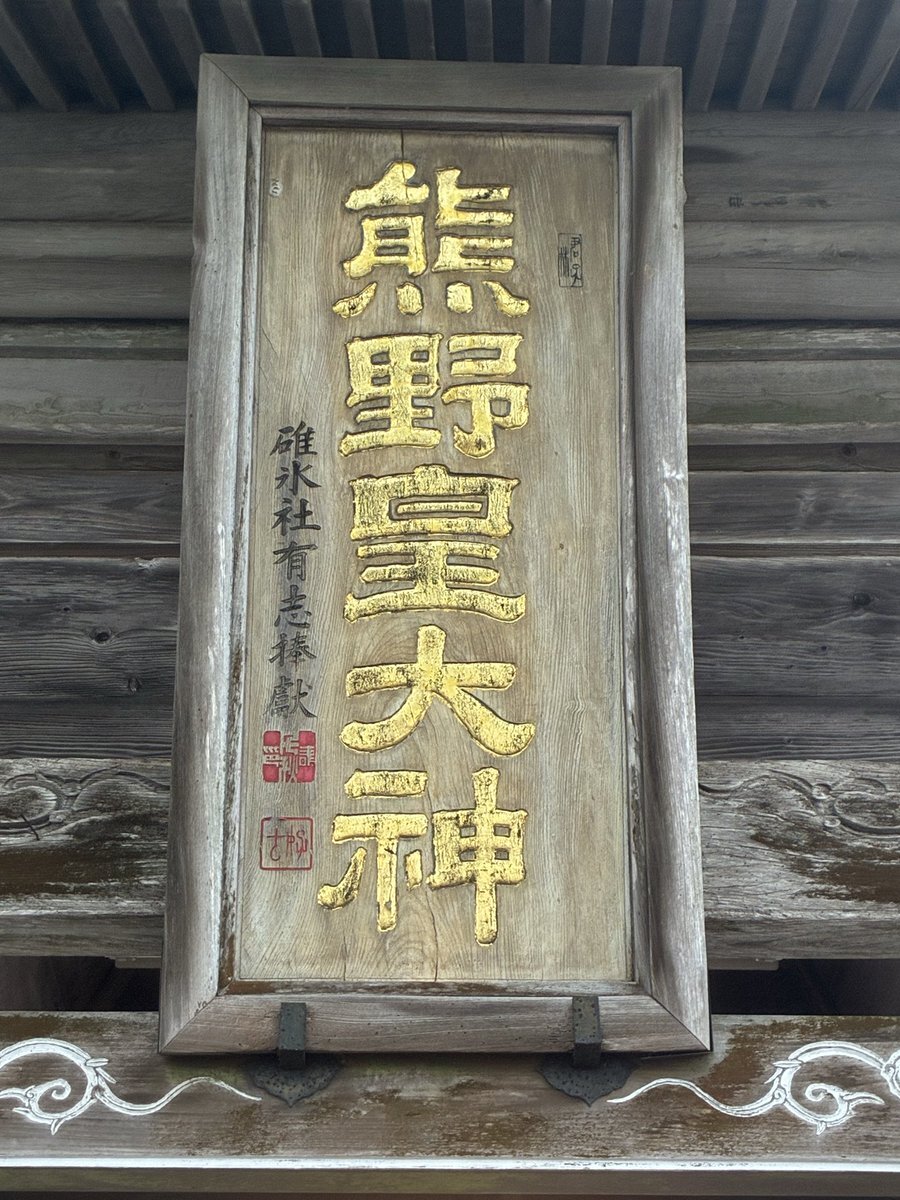 熊野皇大神
碓氷社有志捧獻